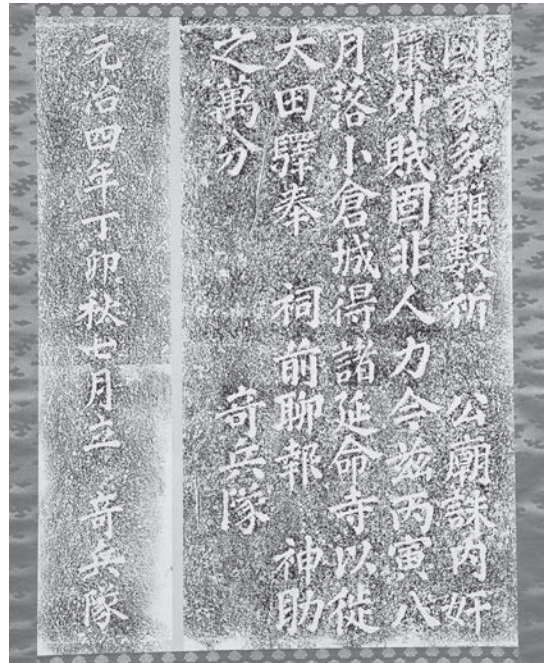 國家多難數祈　公廟誅內奸
攘外賊固非人力今茲丙寅八
月落小倉城得諸延命寺以從
大田驛奉　祠前聊報　神助
之萬分　奇兵隊
元治四年丁卯秋七月立　奇兵隊